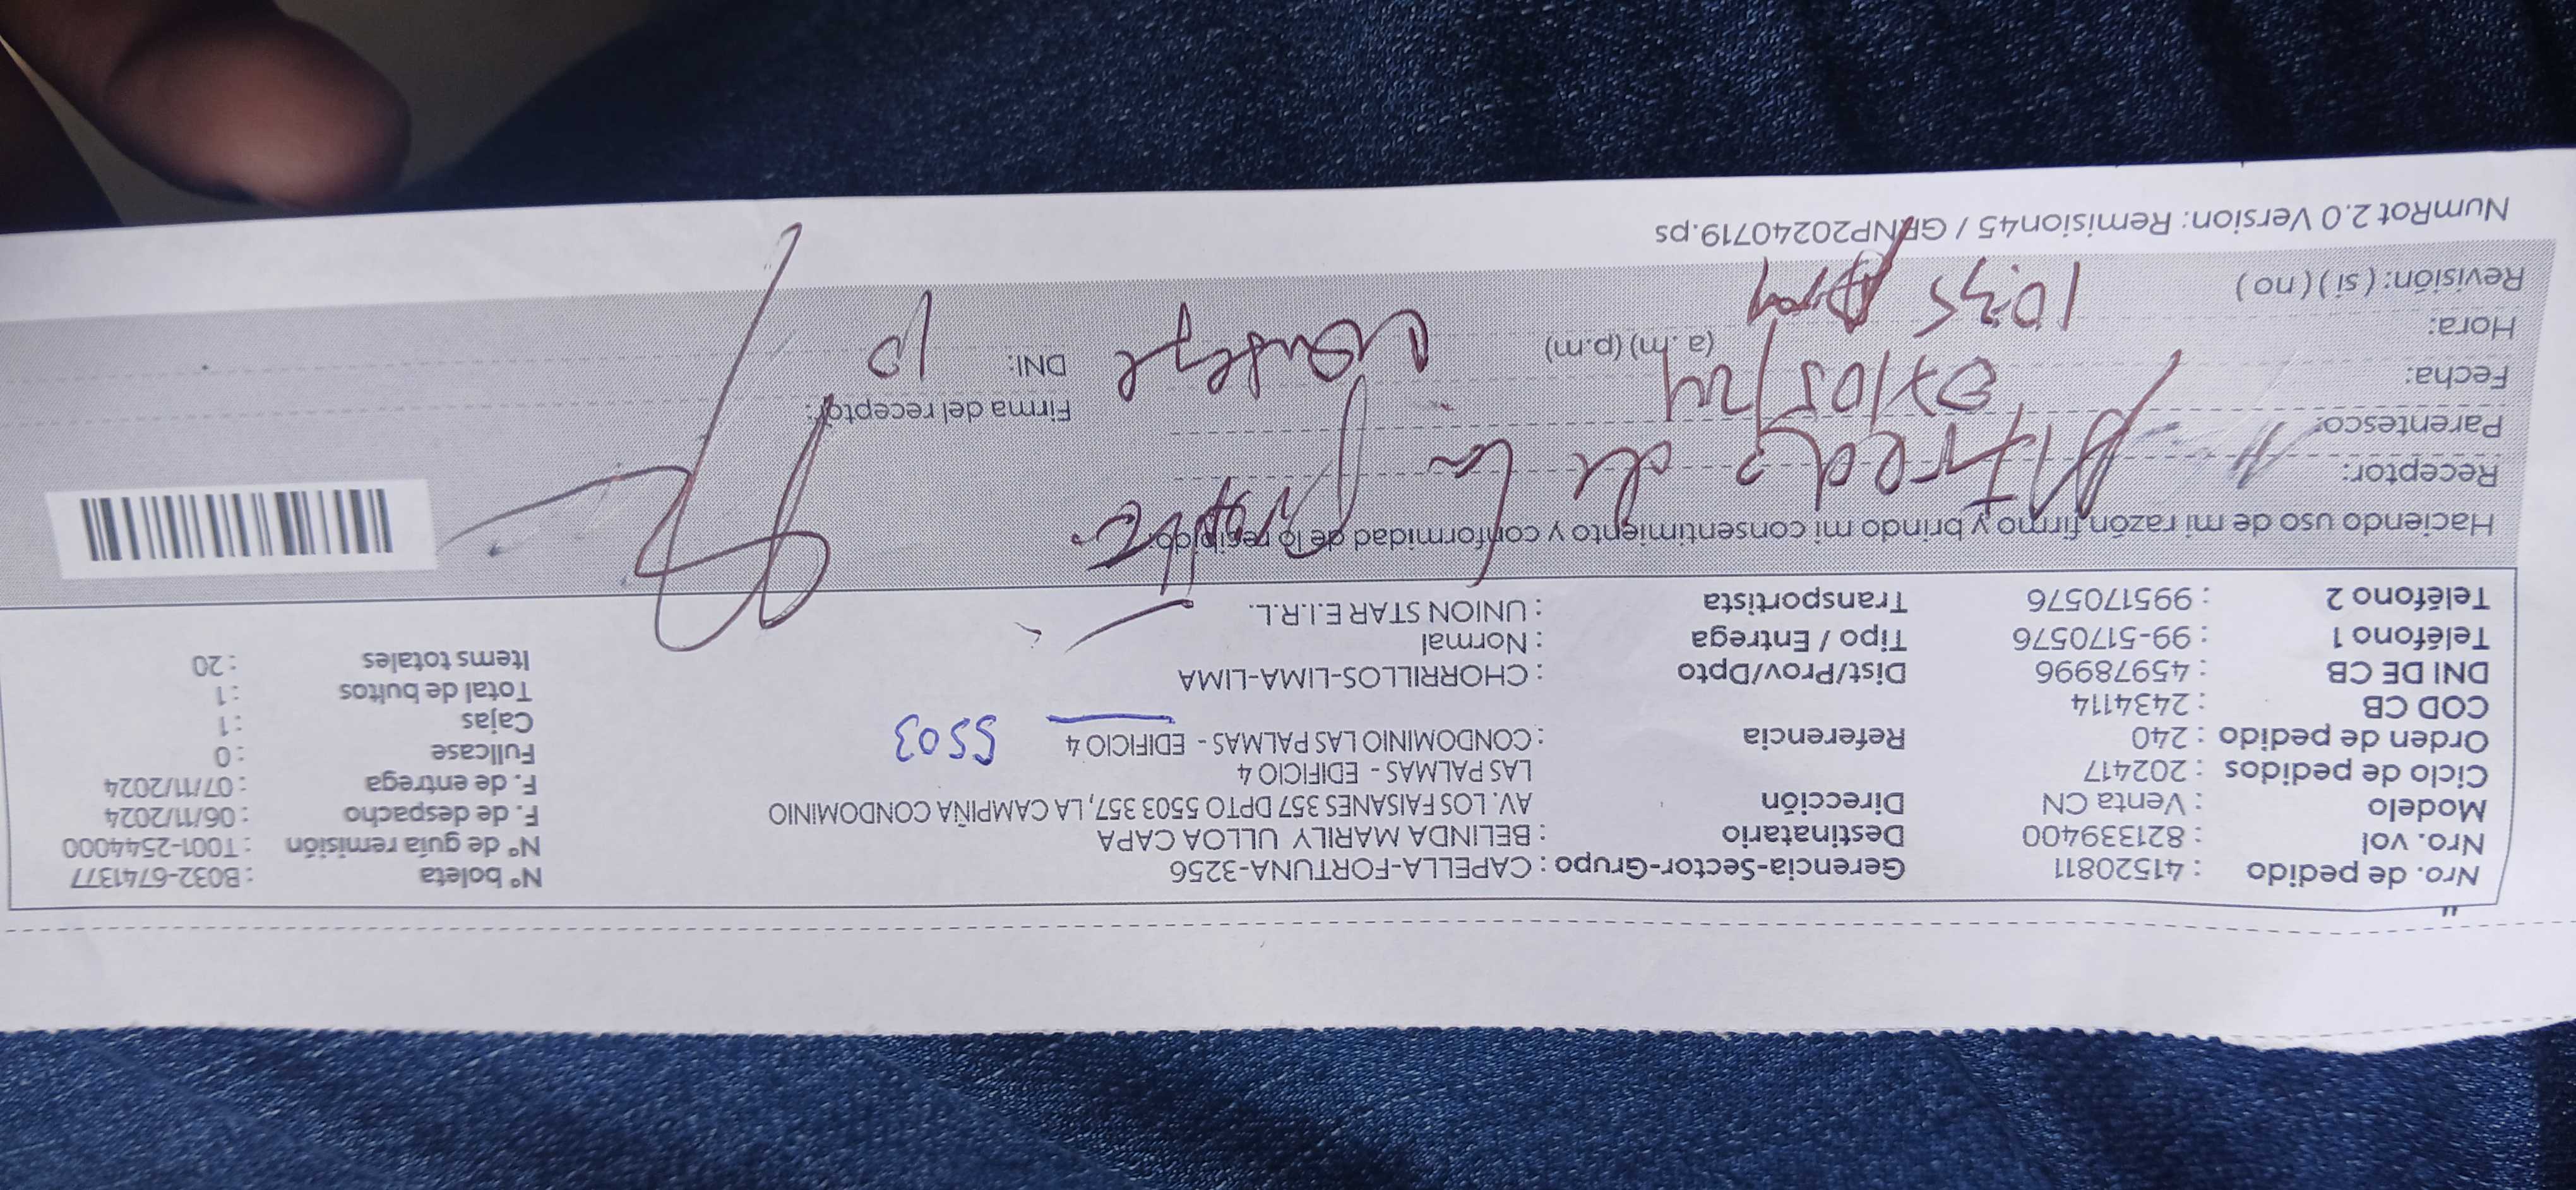 Nro. de pedido : 41520811 Gerencia-Sector-Grupo : CAPELLA-FORTUNA-3256 N° boleta : B032-6741377
Nro. vol : 821339400 Destinatario : BELINDA MARILY ULLOA CAPA N° de guía remisión : T001-2544000
Modelo : Venta CN Dirección AV. LOS FAISANES 357 DPTO 5503 357, LA CAMPIÑA CONDOMINIO F. de despacho : 06/11/2024
Ciclo de pedidos : 202417 LAS PALMAS - EDIFICIO 4 F. de entrega : 07/11/2024
Orden de pedido : 240 Referencia : CONDOMINIO LAS PALMAS - EDIFICIO 4 5503 Fullcase : 0
COD CB : 2434114 Cajas : 1
DNI DE CB : 45978996 Dist/Prov/Dpto : CHORRILLOS-LIMA-LIMA Total de bultos : 1
Teléfono 1 : 99-5170576 Tipo / Entrega : Normal Items totales : 20
Teléfono 2 : 995170576 Transportista : UNION STAR E.I.R.L.
Haciendo uso de mi razón firmo y brindo mi consentimiento y conformidad de lo recibido:
Receptor: Alfredo de la
Parentesco:
Fecha: Firma del receptor:
Hora: 10:35 (a.m) (p.m) DNI:
Revisión: ( si ) ( no )
NumRot 2.0 Version: Remision45 / GRNP20240719.ps